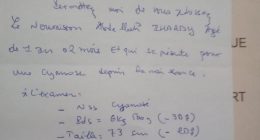 Permettez moi de vous
Le Nourrisson Abdellah agé
de 1 an 02 mois et qui se présente pour
une cyanose depuis la naissance.
à l'examen:
- cyanosé
- Pds = 6kg (-3DS)
- Taille: 73 cm (-2DS)
UE
RT